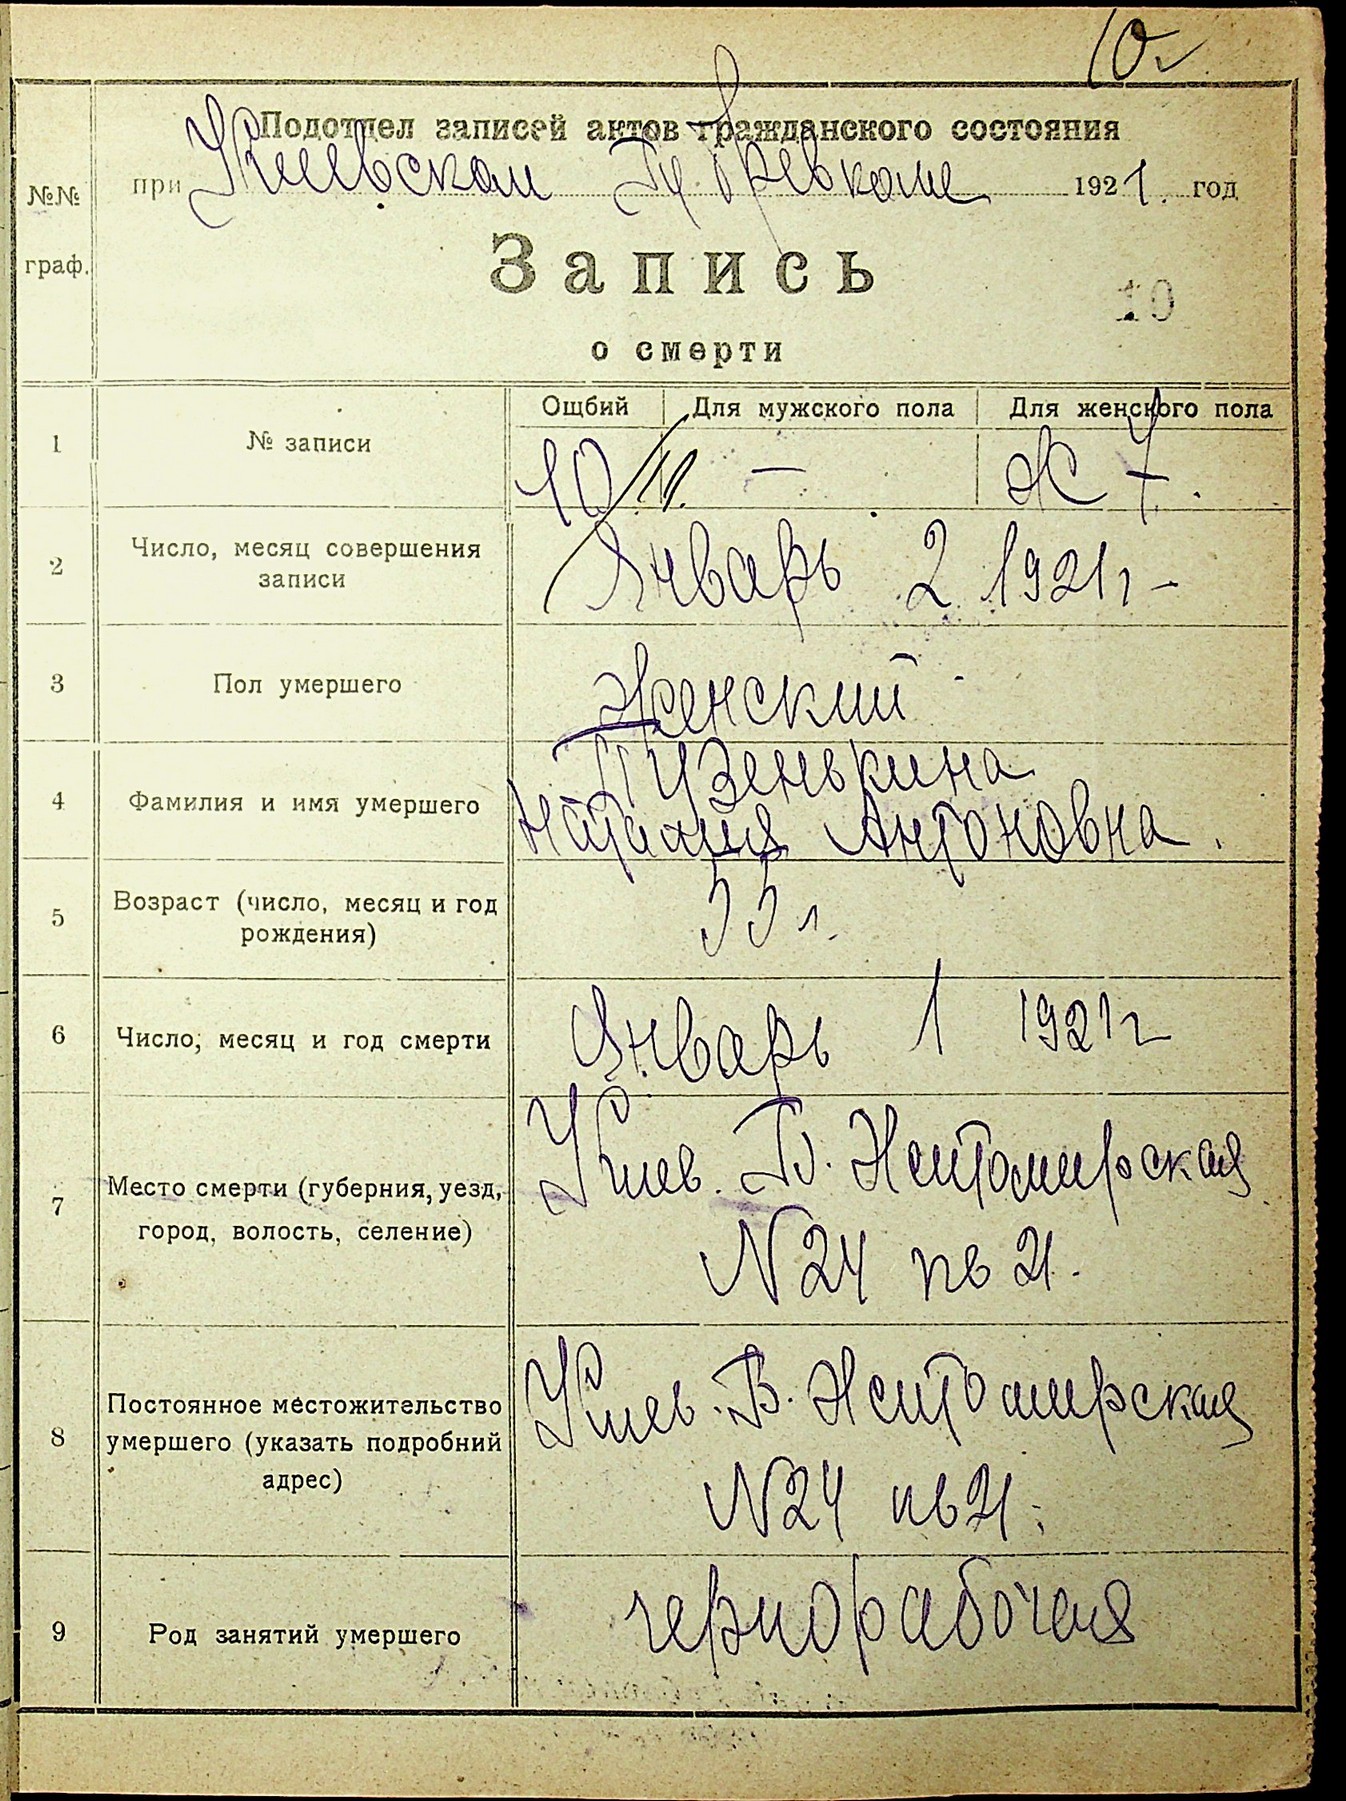 10
Подотдел записей актов гражданского состояния
при Киевском Губревкоме 1921 год
№№
граф.
Запись
10
о смерти
Ощбий Для мужского пола Для женского пола
1 № записи 10 — Ж 7.
2 Число, месяц совершения
записи
Январь 2 1921 г
3 Пол умершего Женский
4 Фамилия и имя умершего
Пузенькина
Наталия Антоновна.
5 Возраст (число, месяц и год
рождения)
55 л.
6 Число, месяц и год смерти Январь 1 1921 г
7 Место смерти (губерния, уезд,
город, волость, селение)
Киев. В. Житомирская
N 24 кв 21.
8 Постоянное местожительство
умершего (указать подробний
адрес)
Киев. В. Житомирская
N 24 кв 21.
9 Род занятий умершего чернорабочая